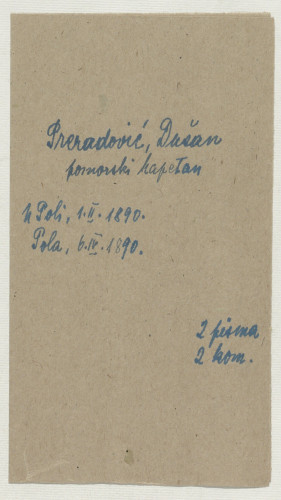 Preradović, Dušan
pomorski kapetan
U Poli, 1.II.1890.
Pola, 6.IV.1890.
2 pisma
2 kom.